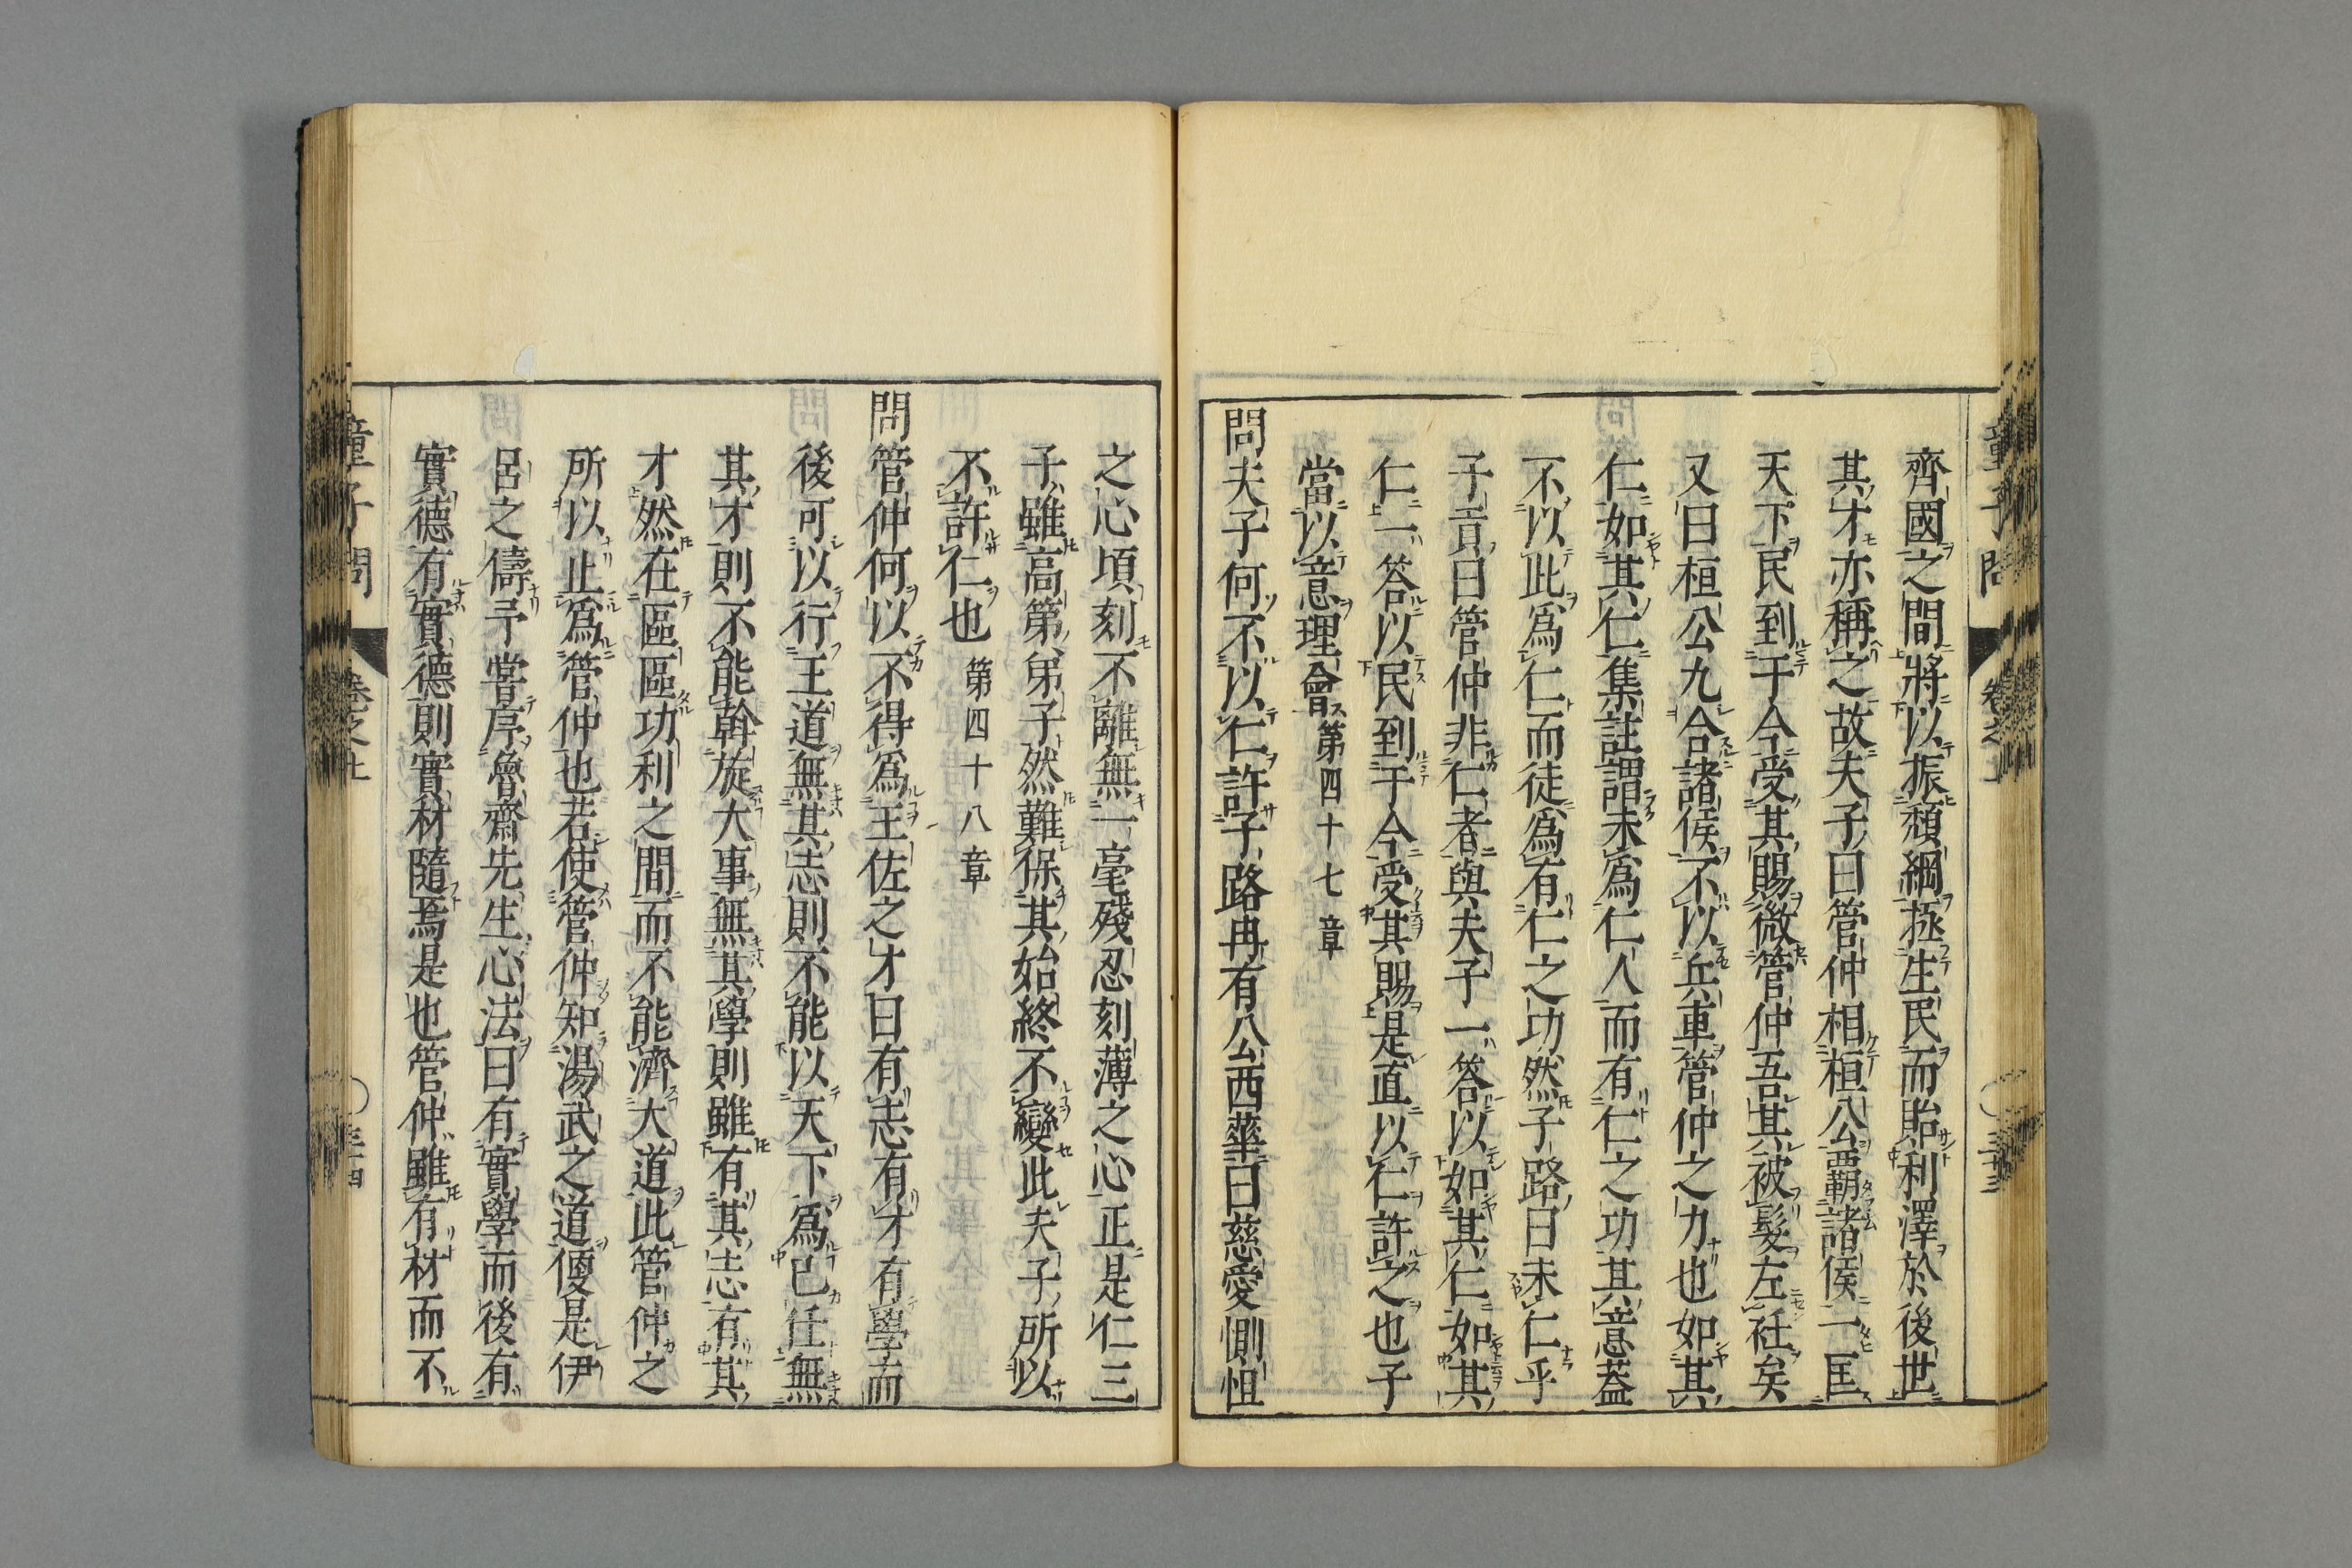 齊國之間將以振頽綱拯生民而貽利澤於後世
其才亦稱之故夫子曰管仲相桓公霸諸侯一匡
天下民到于今受其賜微管仲吾其被髮左衽矣
又曰桓公九合諸侯不以兵車管仲之力也如其
仁如其仁集註謂未爲仁人而有仁之功其意蓋
不以此爲仁而徒爲有仁之功然子路曰未仁乎
子貢曰管仲非仁者與夫子一答以如其仁如其
仁一答以民到于今受其賜是直以仁許之也子
當以意理會第四十七章
問夫子何不以仁許子路冉有公西華曰慈愛惻怛
之心頃刻不離無一毫殘忍刻薄之心正是仁三
子雖高第弟子然難保其始終不變此夫子所以
不許仁也第四十八章
問管仲何以不得爲王佐之才曰有志有才有學而
後可以行王道無其志則不能以天下爲己任無
其才則不能斡旋大事無其學則雖有其志有其
才然在區區功利之間而不能濟大道此管仲之
所以止爲管仲也若使管仲知湯武之道便是伊
呂之儔予嘗序魯齋先生心法曰有實學而後有
實德有實德則實材隨焉是也管仲雖有材而不
童子問 卷之上 三十四